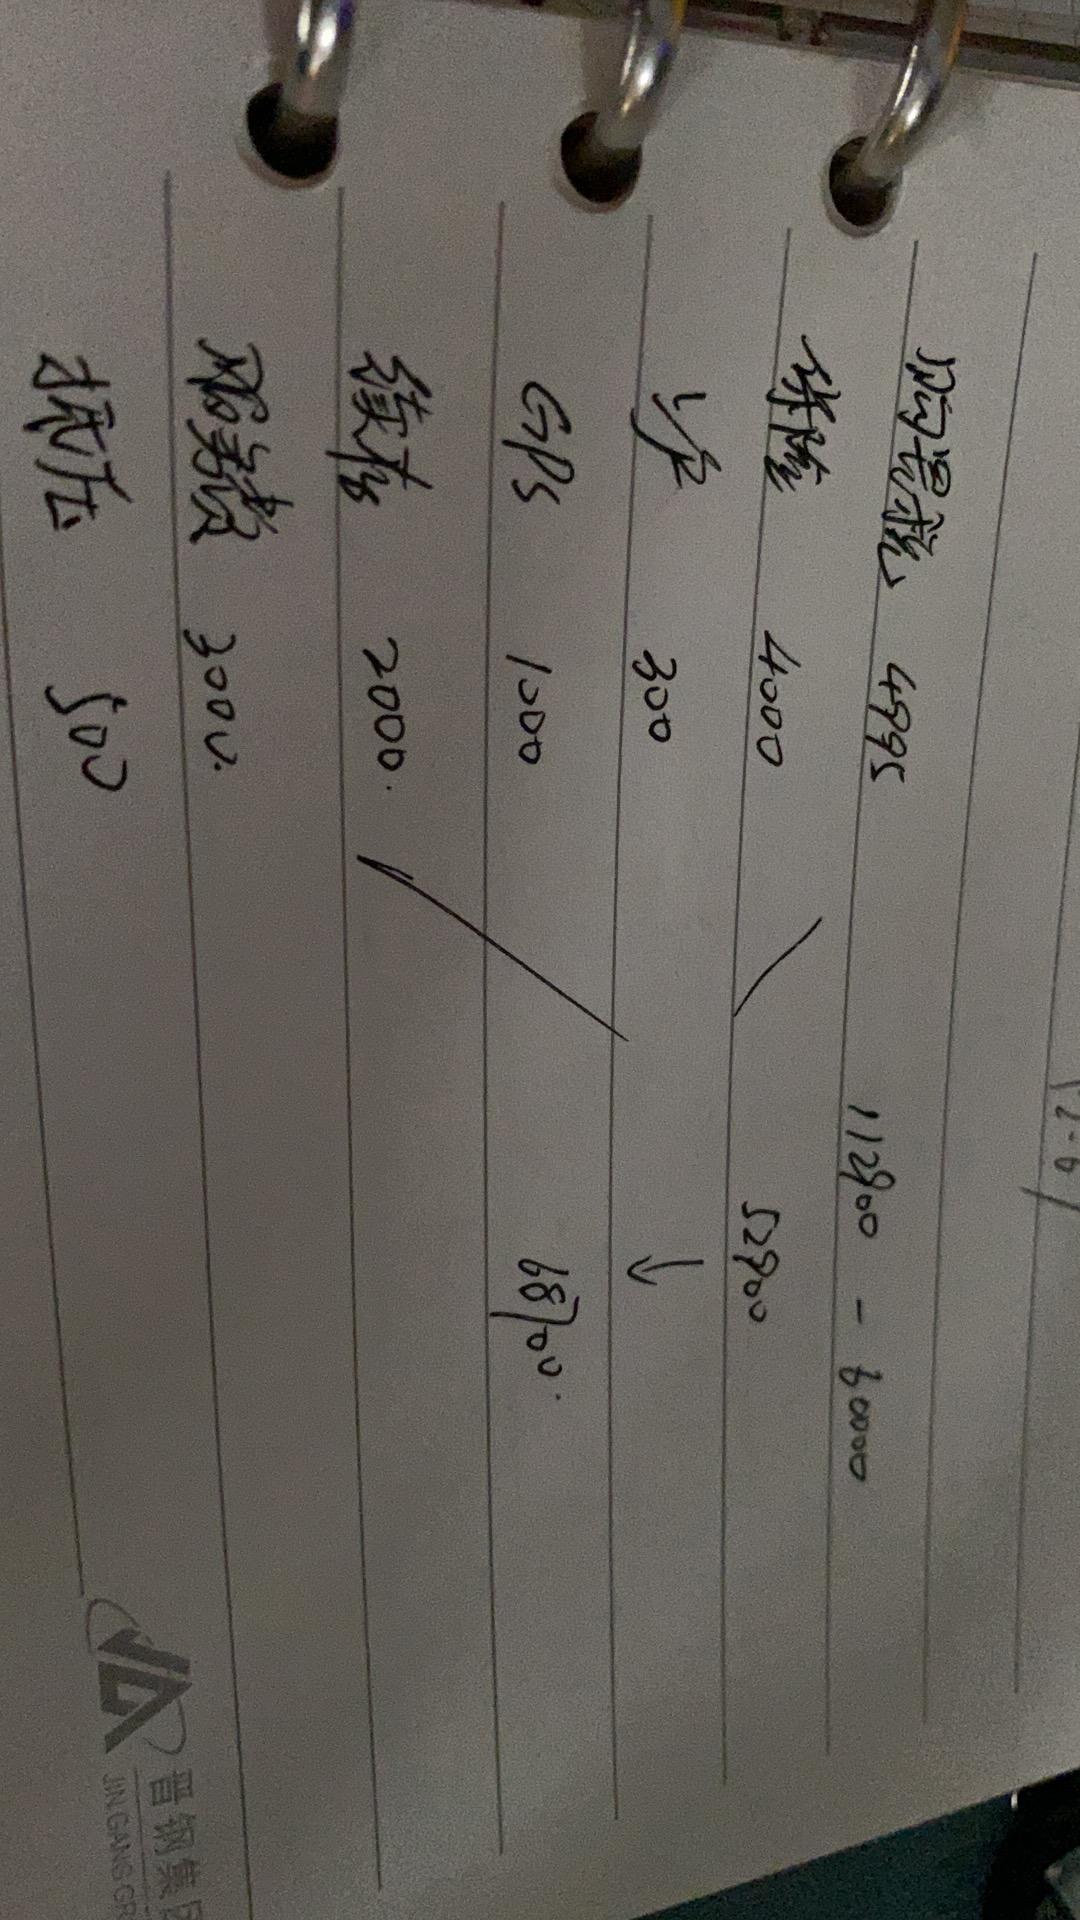 购置税 4995
保险 4000
112900 - 60000
上户 300
52900
GPS 1000
↓
续保 2000.
68700.
服务费 3000.
抵压 500
晋钢集团
JINGANG GR